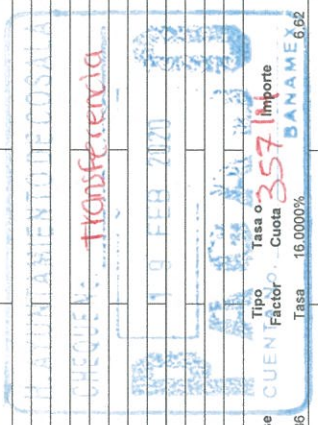 H. AYUNTAMIENTO DE COSALA
CHEQUE N. transferencia
19 FEB 2020
PAGADO
CUENTA No. 3571
BANAMEX
Tipo Factor Tasa o Cuota Importe
Tasa 16.0000% 6.62